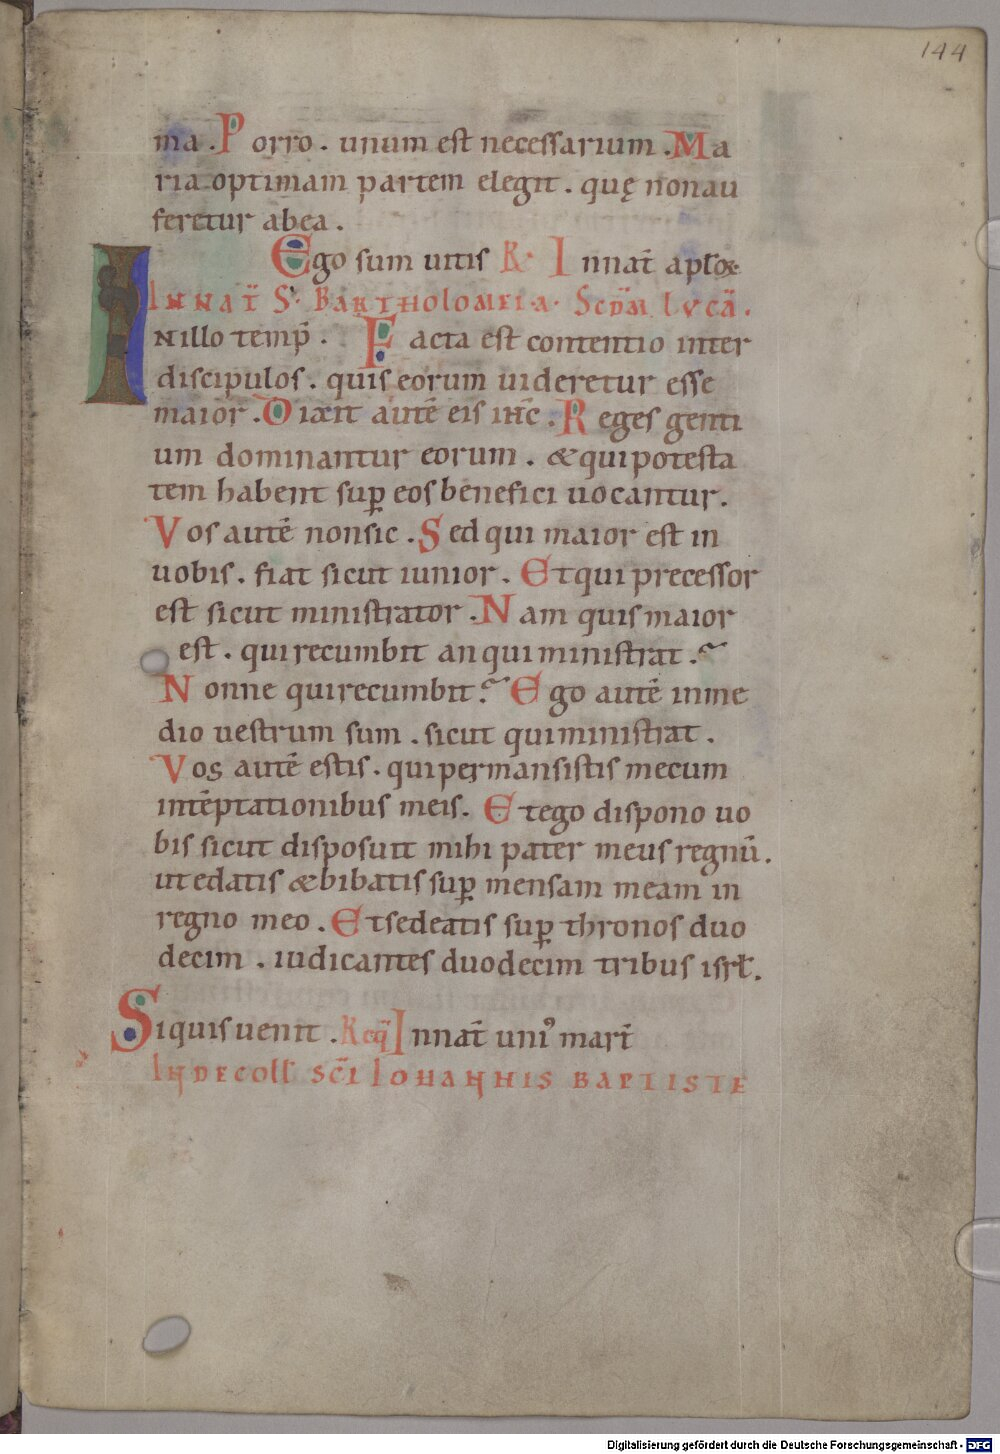 144
ma. Porro. unum est necessarium. Ma
ria optimam partem elegit. quę nonau
feretur abea.
Ego sum uitis R. Innat̄ aploꝝ
INNAT̄ S. BARTHOLOMEI. A. SCD̄M LVCĀ.
INillo temp̄. Facta est contentio inter
discipulos. quis eorum uideretur esse
maior. Dixit autē eis ihc̄. Reges genti
um dominantur eorum. & quipotesta
tem habent suꝑ eos benefici uocantur.
Vos autē nonsic. Sed qui maior est in
uobis. fiat sicut iunior. Etqui precessor
est sicut ministrator. Nam quis maior
est. quirecumbit an quiministrat.
Nonne quirecumbit? Ego autē inme
dio uestrum sum. sicut quiministrat.
Vos autē estis. quipermansistis mecum
intēptationibus meis. Etego dispono uo
bis sicut disposuit mihi pater meus regnū.
ut edatis & bibatis suꝑ mensam meam in
regno meo. Etsedeatis suꝑ thronos duo
decim. iudicantes duodecim tribus isrł.
Siquis uenit. Req̄ Innat̄ uniꝰ mart̄
IN DECOLL SC̄I IOHANNIS BAPTISTE
Digitalisierung gefördert durch die Deutsche Forschungsgemeinschaft - DFG